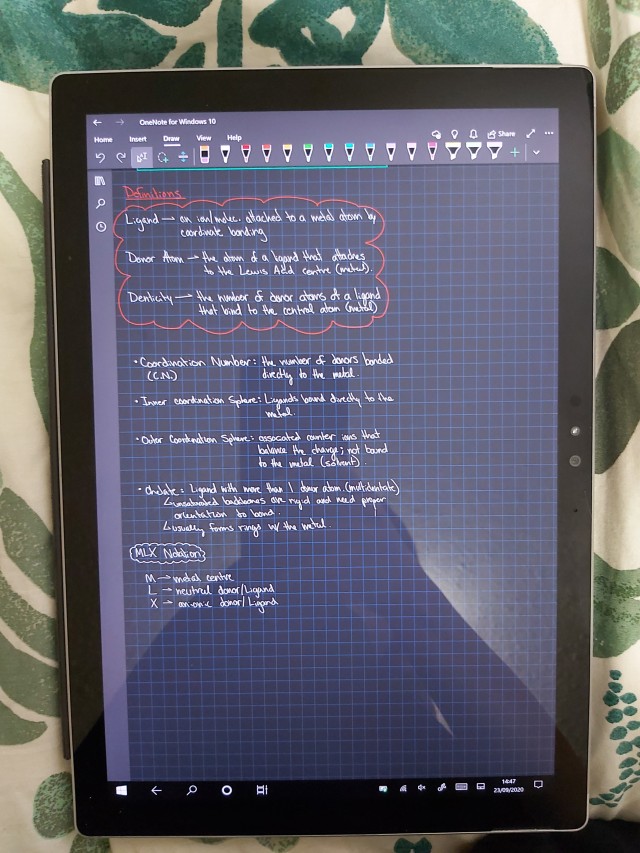 OneNote for Windows 10
Home Insert Draw View Help Share
Definitions
Ligand → an ion/molec. attached to a metal atom by
coordinate bonding
Donor Atom → the atom of a ligand that attaches
to the Lewis Acid centre (metal).
Denticity → the number of donor atoms of a ligand
that bind to the central atom (metal)
• Coordination Number: the number of donors bonded
(C.N.) directly to the metal.
• Inner coordination Sphere: Ligands bound directly to the
metal.
• Outer Coordination Sphere: associated counter ions that
balance the charge; not bound
to the metal (solvent).
• Chelate: Ligand with more than 1 donor atom (multidentate)
↳ unsaturated backbones are rigid and need proper
orientation to bond.
↳ usually forms rings w/ the metal.
MLX Notation
M → metal centre
L → neutral donor/Ligand
X → anionic donor/Ligand
14:47
23/09/2020